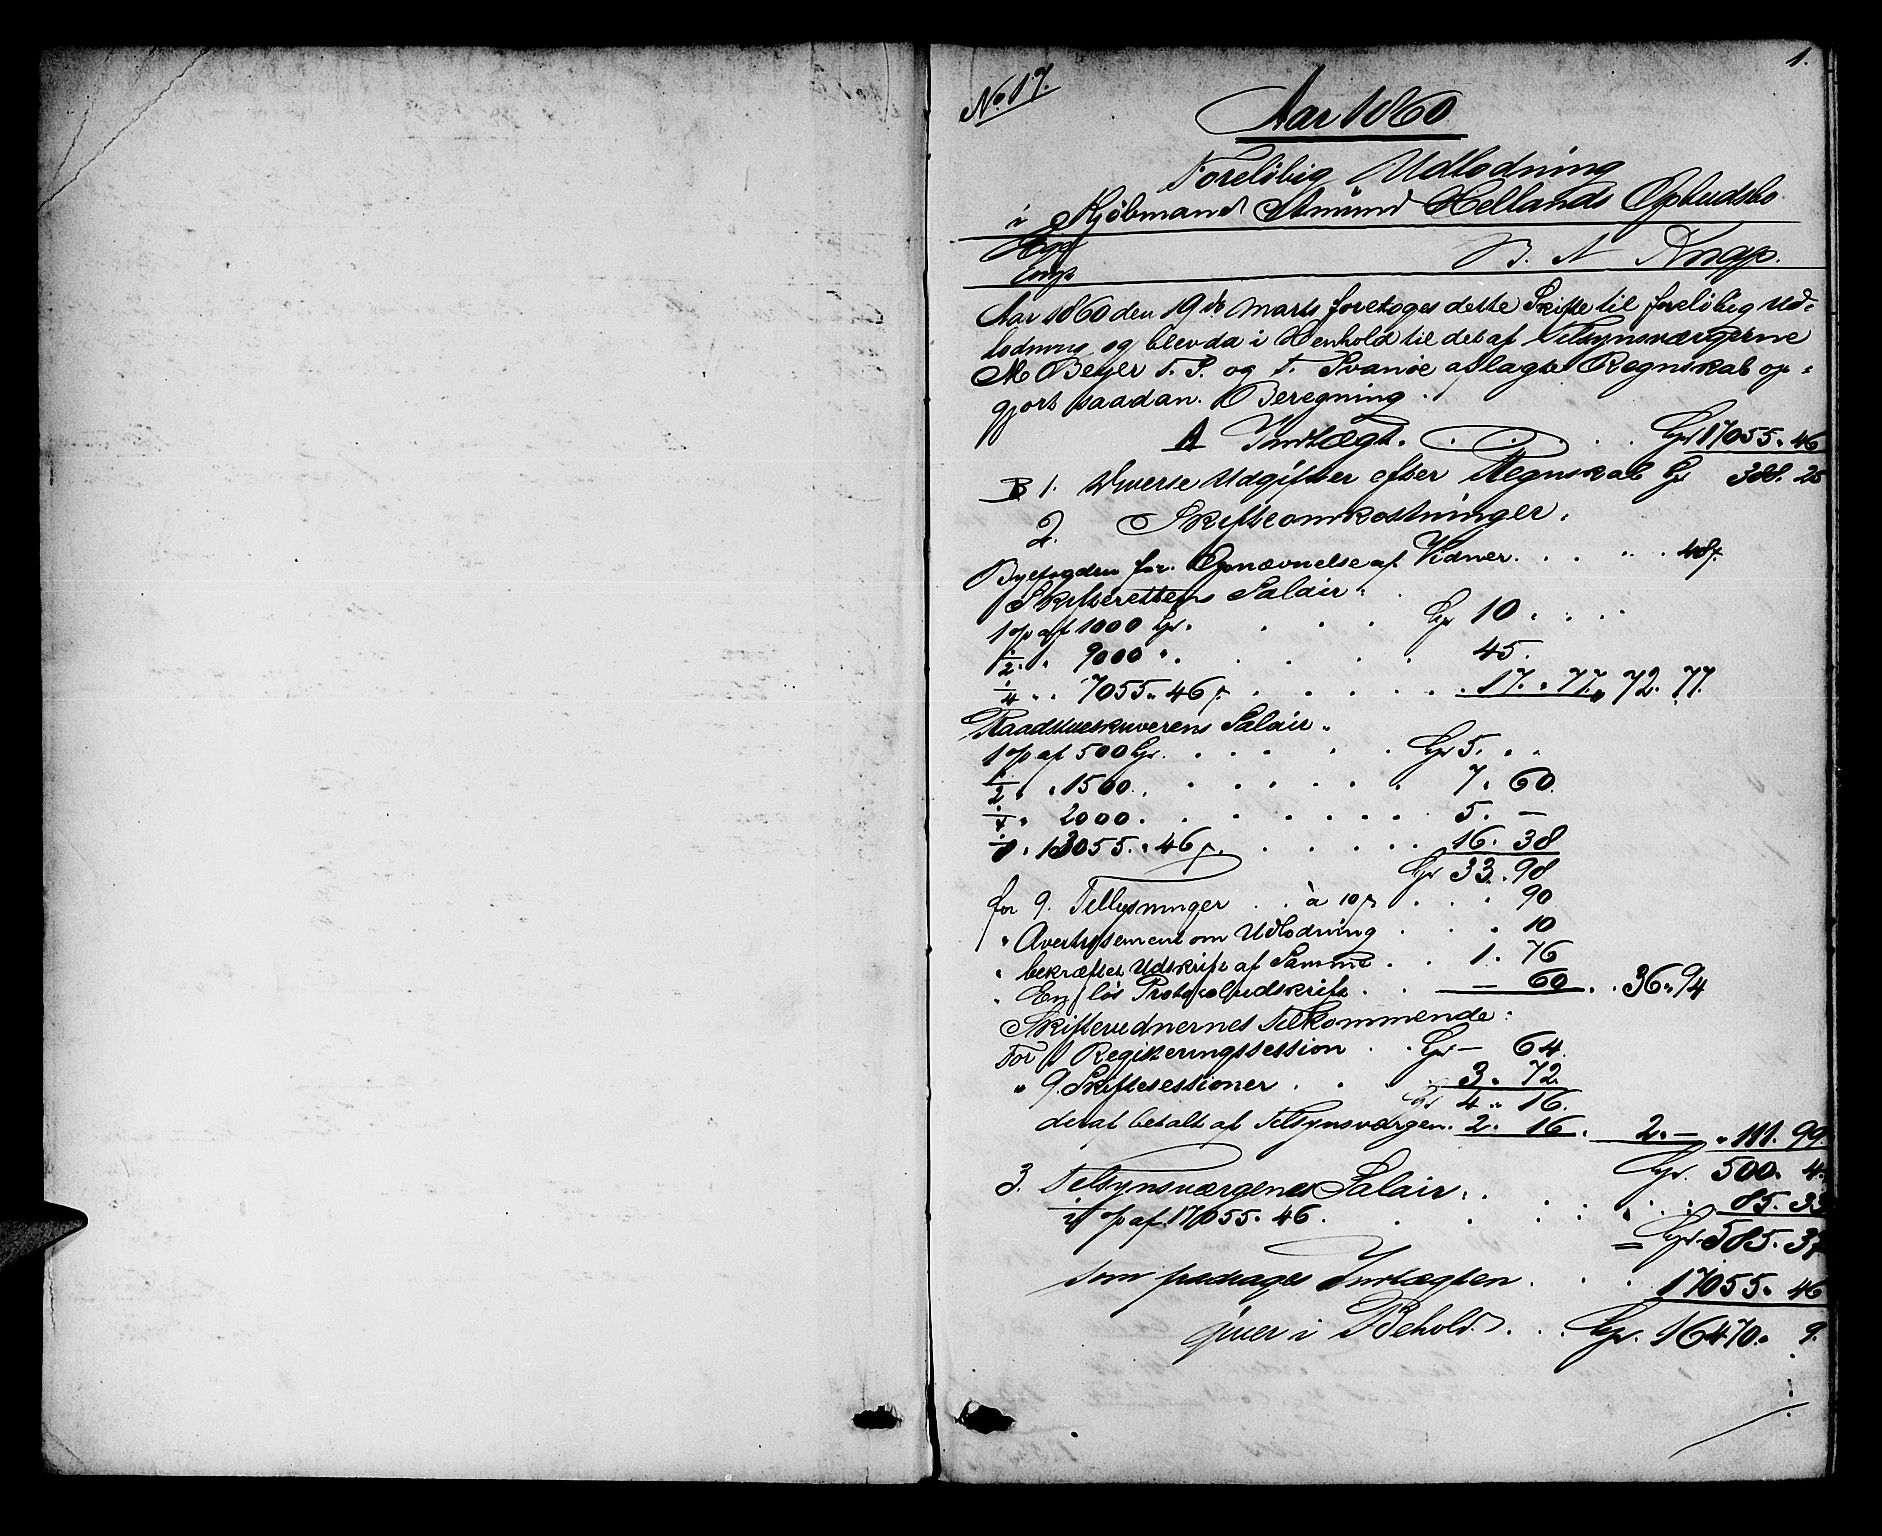 1.
No 17.
Aar 1860
Foreløbig Udlodning
i Kjøbmand Amund Hellands Opbudsbo
B. N Krag.
Aar 1860 den 19de Marts foretoges dette Skifte til foreløbig Ud-
lodning og blev da i Henhold til det af Tilsynsværgerne
M Beyer T. P. og T. Svanøe aflagte Regnskab op-
gjort saadan Beregning.
A Indtægt. . . . . Spd 17055. 46
B 1. Diverse Udgifter efter Regnskab Spd 388. 25
2. Skifteomkostninger.
Byefogden for Opnævnelse af Vidner. . . . . 48 ß
Skifterettens Salair.
1 op af 1000 Spd. . . . . Spd 10 . . .
1/2 . . 9000 . . . . . 45.
1/4 . . 7055. 46 ß . . . . . 17. 77. 72. 77.
Raadstueskriverens Salair.
1 op af 500 Spd. . . . . Spd 5. . .
1/2 . . 1500. . . . . 7. 60.
1/4 . 2000. . . . . 5. —
1/8 . 13055. 46 ß. . . . . 16. 38
Spd 33. 98
for 9. Tillysninger . . à 10 ß . . . 90
" Avertissement om Udlodning . . . 10
" bekræftet Udskrift af Samme . . 1. 76
" En løs Protokoludskrift . . — 60 . . 36. 94
Skiftevidnernes Tilkommende:
For 1 Registreringssession . . Spd — 64.
" 9. Skiftesessioner . . . 3. 72.
Spd 4. 16.
deraf betalt af Tilsynsværgen. 2. 16. 2. — . 111. 99.
Spd. 500. 4.
3. Tilsynsværgenes Salair.
1/2 op af 17055. 46. . . . . 85. 33
= Spd. 585. 37
som fradrages Indtægten . . . 17055. 46
giver i Behold. . . Spd. 16470. 9.